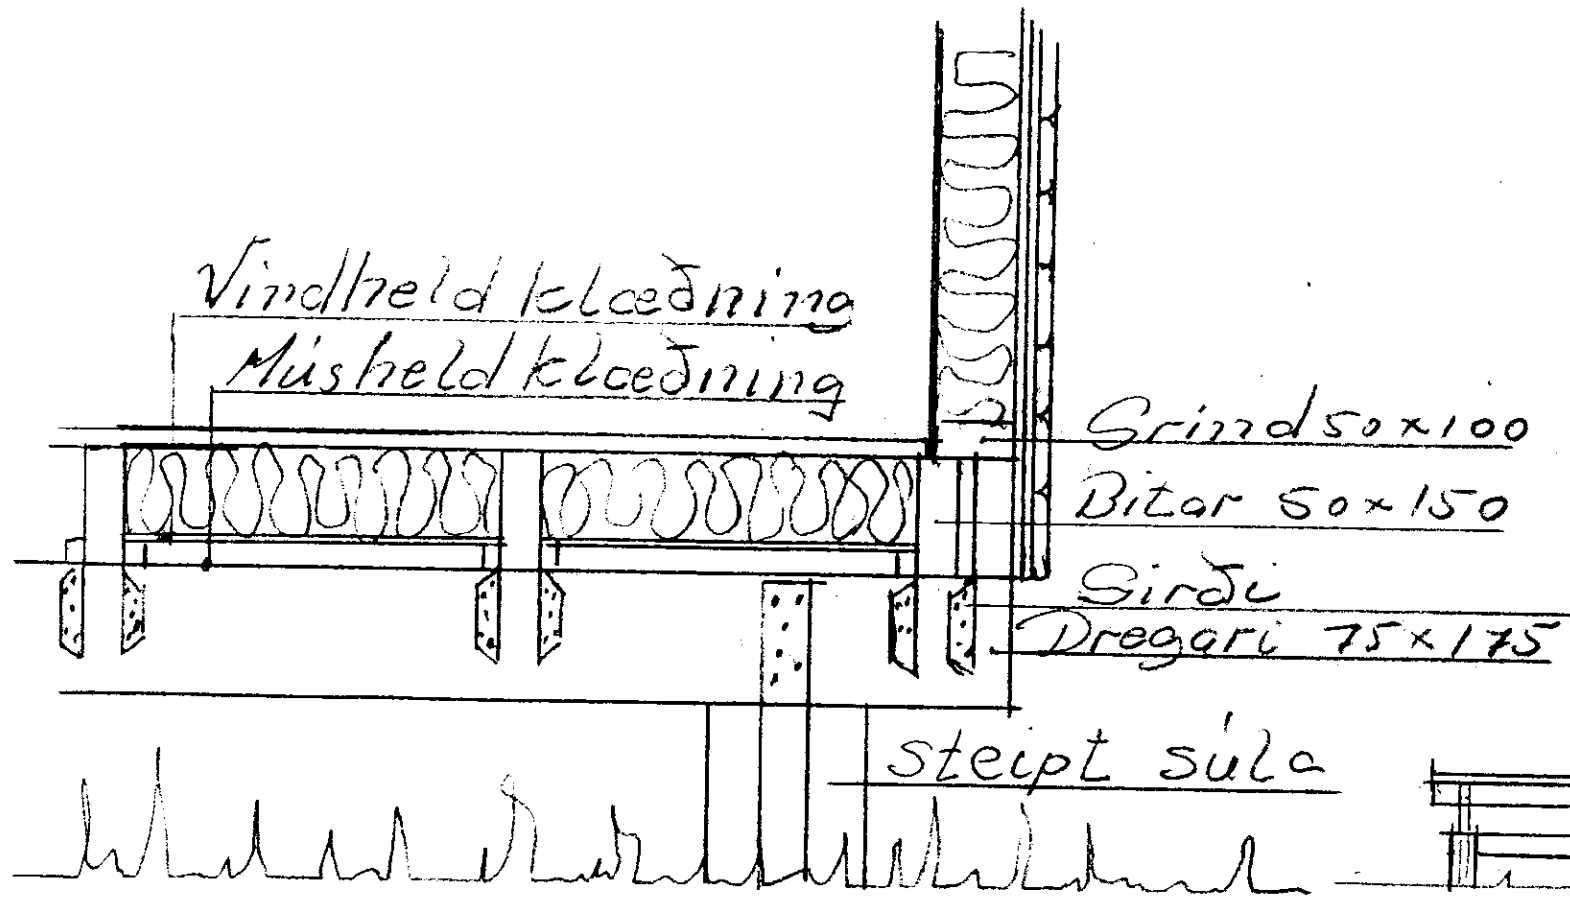 Vindheld klæðning
Músheld klæðning
Grind 50x100
Bitar 50x150
Girði
Dregari 75x175
steipt súla